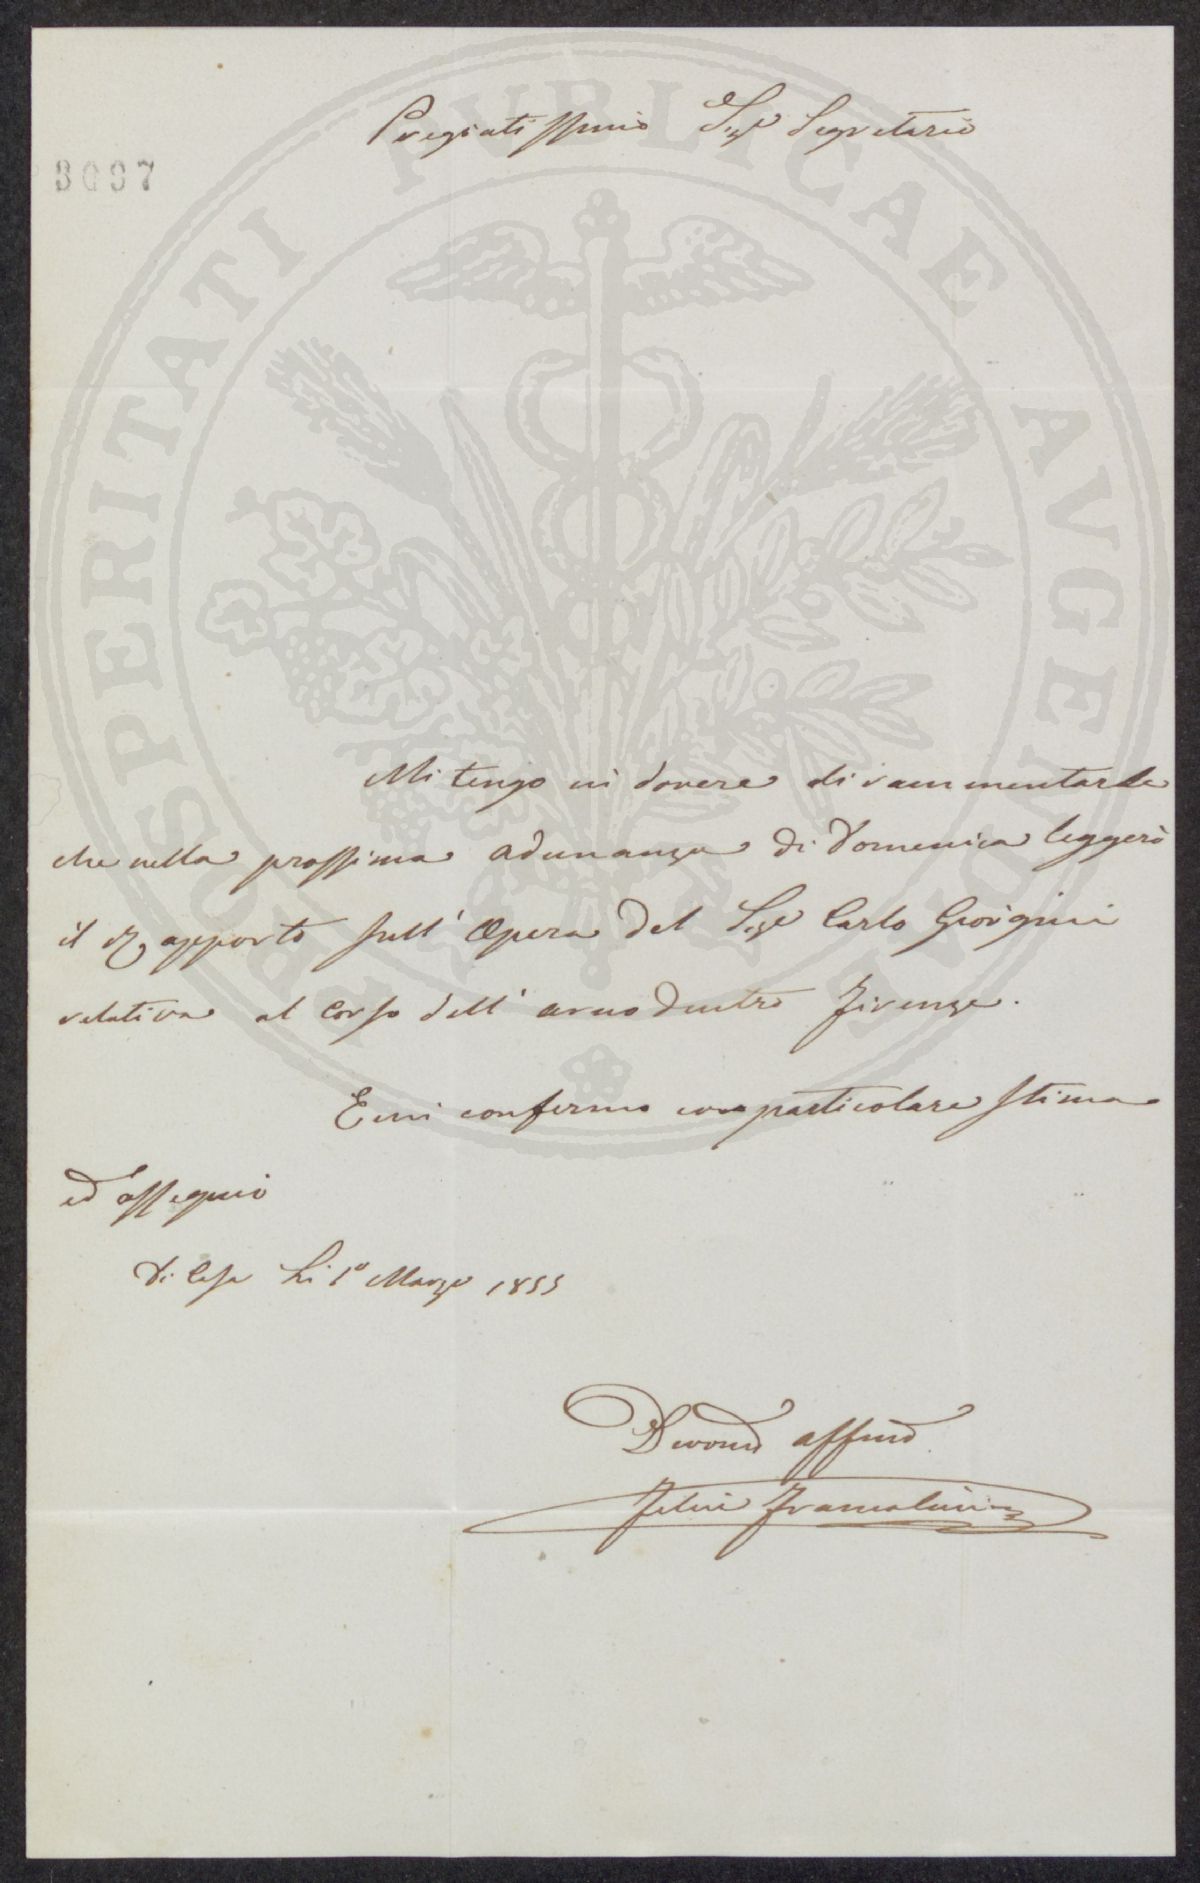 Pregiatissimo Sigr Segretario
3097
Mi tengo in dovere di rammentarle
che nella prossima adunanza di Domenica leggerò
il Rapporto sull' Opera del Sigr Carlo Giorgini
relativa al corso dell' arno dentro Firenze.
E mi confermo con particolare stima
ed ossequio
Di Casa Li 1º Marzo 1855
Devomo affmo
Felice Francolini
PROSPERITATI PVBLICAE AVGENDAE